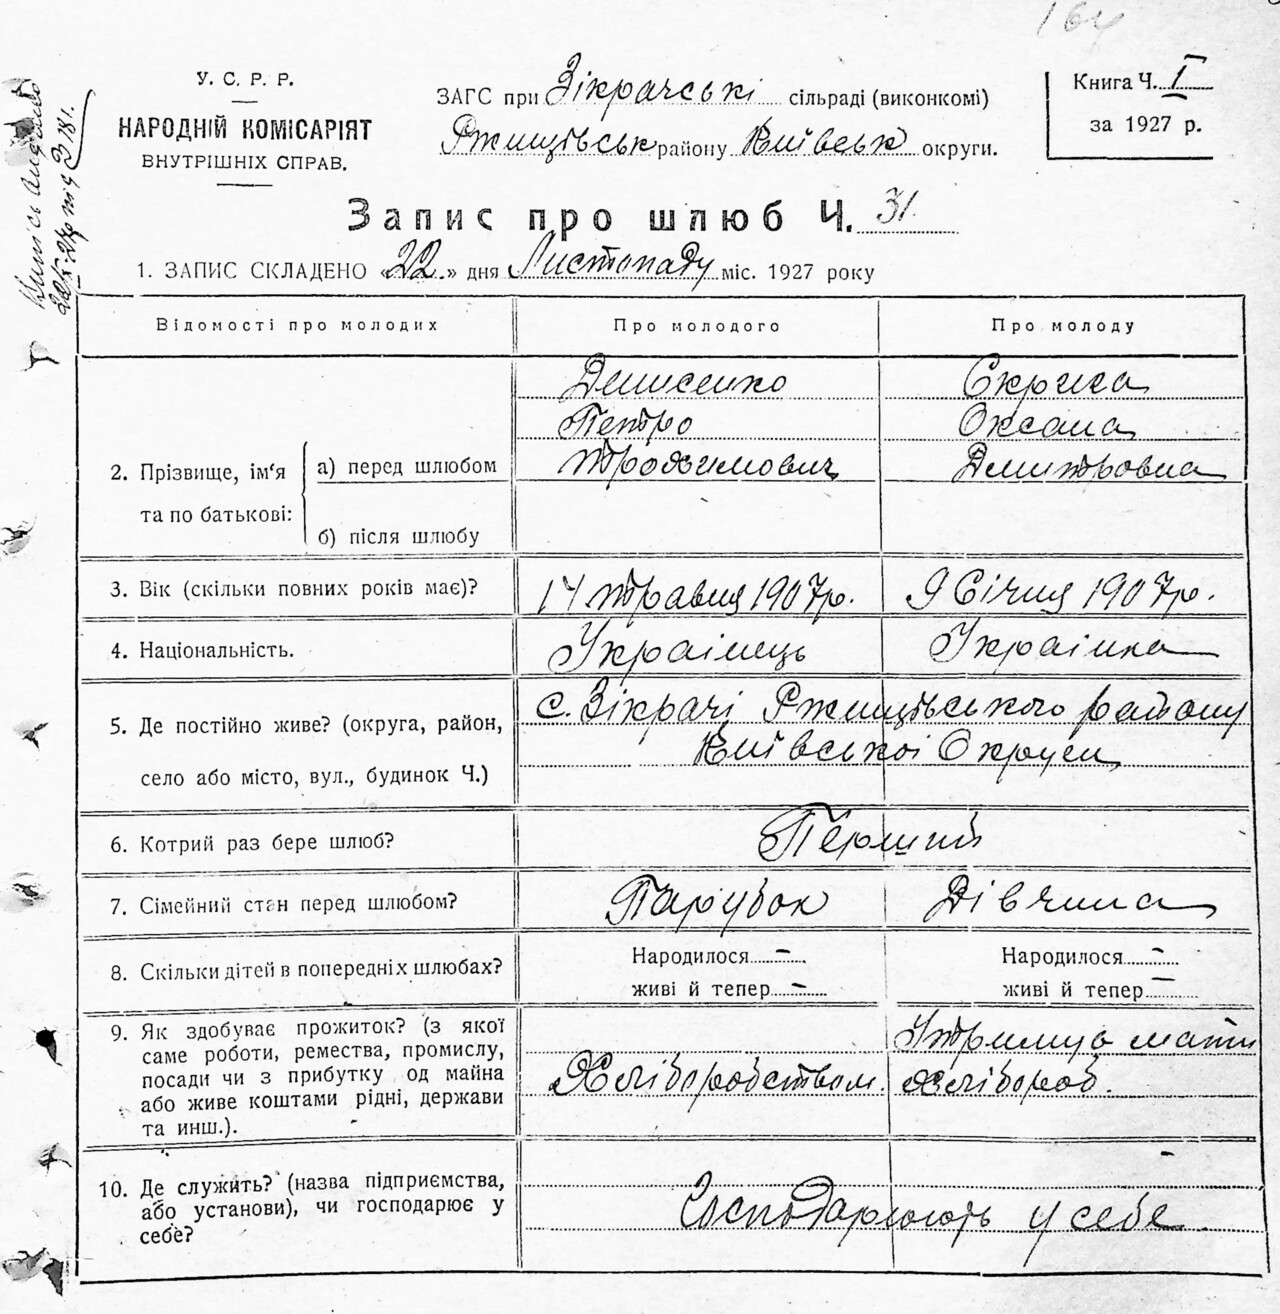 164
У. С. Р. Р.
НАРОДНІЙ КОМІСАРІЯТ
ВНУТРІШНІХ СПРАВ.
ЗАГС при Зікрачські сільраді (виконкомі)
Ржищівськ району Київськ округи.
Книга Ч. I
за 1927 р.
Запис про шлюб Ч. 31.
1. ЗАПИС СКЛАДЕНО «22» дня Листопаду міс. 1927 року
Відомості про молодих
Про молодого
Про молоду
2. Прізвище, ім'я
та по батькові:
а) перед шлюбом
б) після шлюбу
Денисенко
Петро
Трохимович
Скрипка
Оксана
Дмитровна
3. Вік (скільки повних років має)?
14 травня 1907р.
9 Січня 1907р.
4. Національність.
Украінець
Украінка
5. Де постійно живе? (округа, район,
село або місто, вул., будинок Ч.)
с. Зікрачі Ржищівського району
Київськоі Округи
6. Котрий раз бере шлюб?
Перший
7. Сімейний стан перед шлюбом?
Парубок
Дівчина
8. Скільки дітей в попередніх шлюбах?
Народилося –
живі й тепер –
Народилося –
живі й тепер –
9. Як здобуває прожиток? (з якої
саме роботи, ремества, промислу,
посади чи з прибутку од майна
або живе коштами рідні, держави
та инш.).
Хліборобством.
Утримує мати
хлібороб.
10. Де служить? (назва підприємства,
або установи), чи господарює у
себе?
Господарюють у себе.